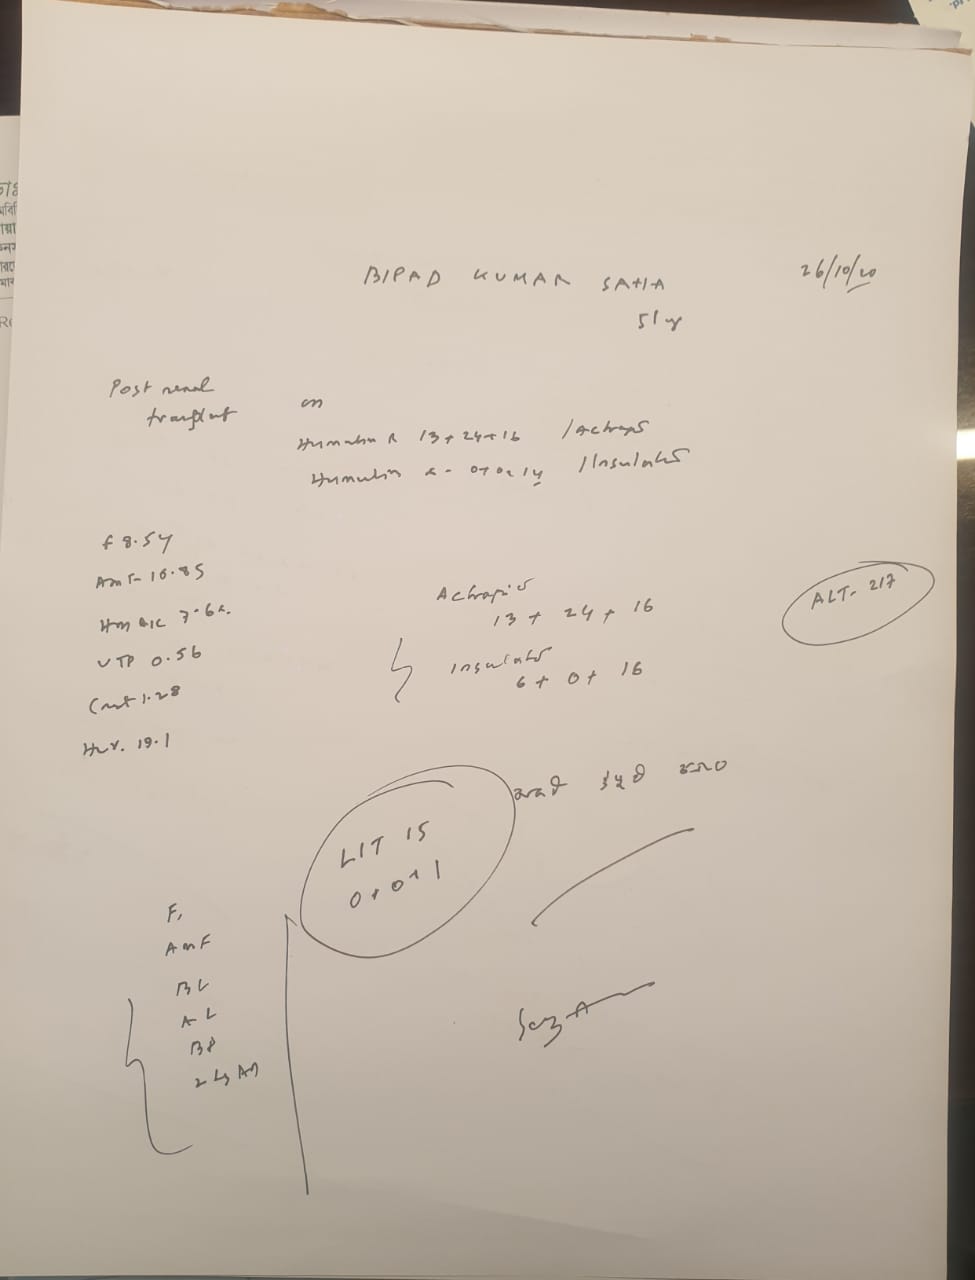 BIPAD KUMAR SAHA
26/10/20
51 y
Post renal
transplant
on
Humulin R 13+24+16 /Actrapid
Humulin 0+0+14 /Insulatard
F 8.54
16.85
7.6%
UTP 0.56
Creat 1.28
19.1
Actrapid
13 + 24 + 16
Insulatard
6 + 0 + 16
ALT- 217
LIT 15
0+0+1
F,
AmF
BL
AL